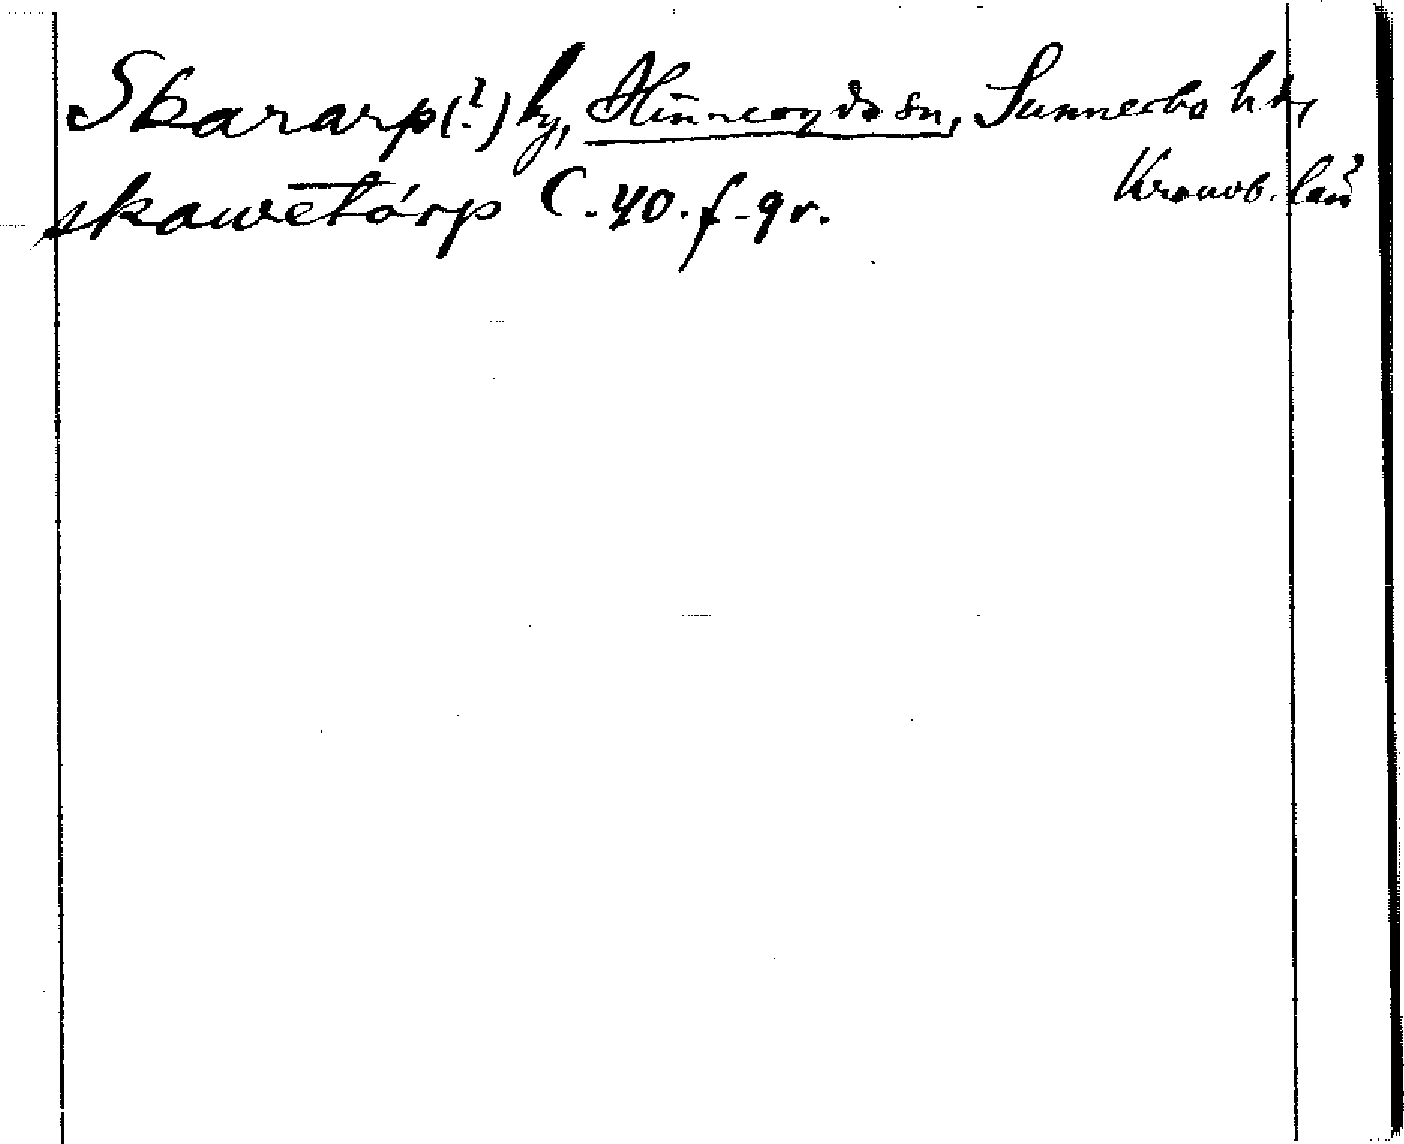 Skararp(?) by, Hinneryds sn, Sunnerbo hd,
Kronob. län
skawetórp C. 40. f. 9 v.